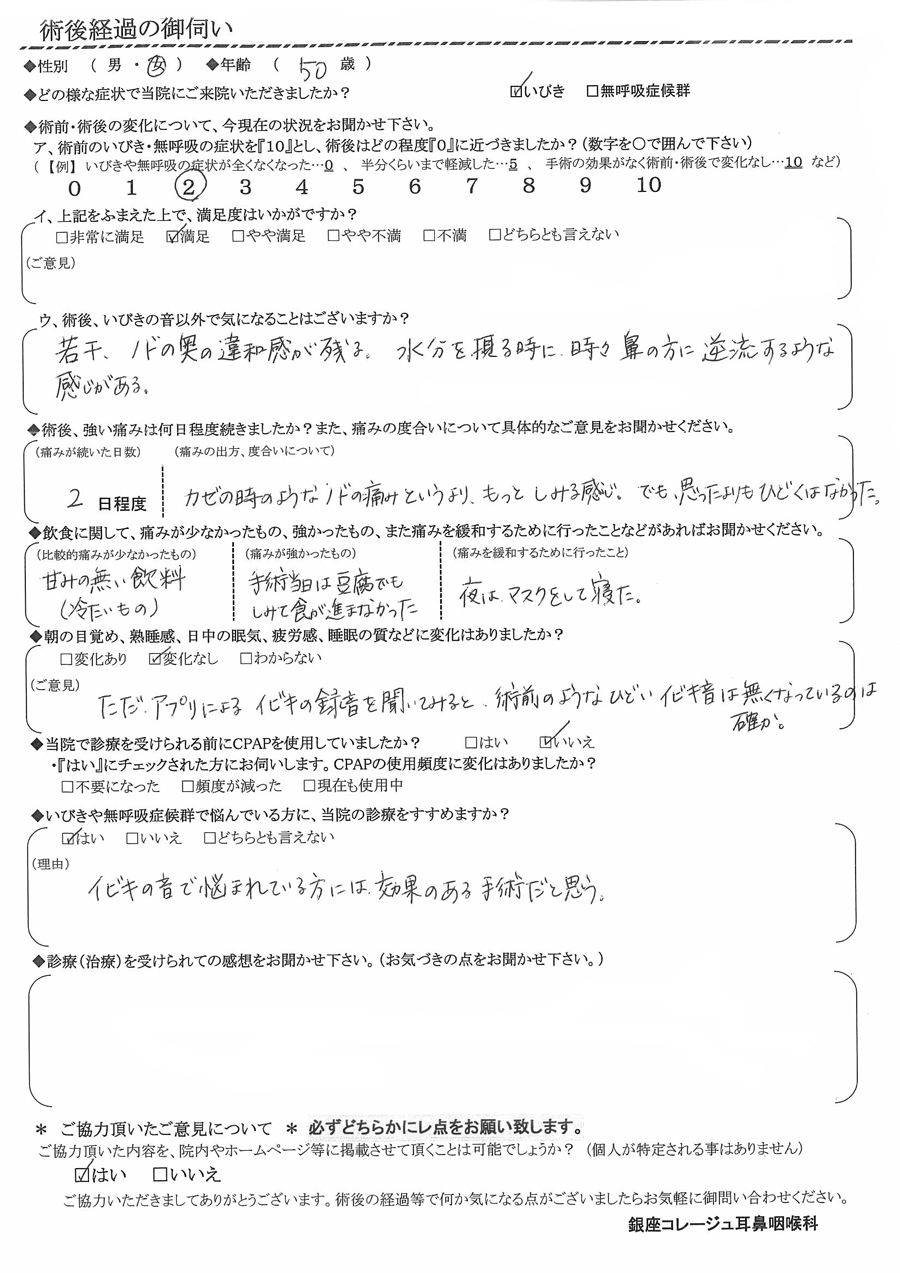 術後経過の御伺い
◆性別 （ 男 ・ 女 ） ◆年齢 （ 50 歳 ）
◆どの様な症状で当院にご来院いただきましたか？ ☑いびき □無呼吸症候群
◆術前・術後の変化について、今現在の状況をお聞かせ下さい。
ア、術前のいびき・無呼吸の症状を『10』とし、術後はどの程度『0』に近づきましたか？（数字を○で囲んで下さい）
（ 【例】 いびきや無呼吸の症状が全くなくなった…0 、 半分くらいまで軽減した…5 、 手術の効果がなく術前・術後で変化なし…10 など）
0 1 2 3 4 5 6 7 8 9 10
イ、上記をふまえた上で、満足度はいかがですか？
□非常に満足 ☑満足 □やや満足 □やや不満 □不満 □どちらとも言えない
（ご意見）
ウ、術後、いびきの音以外で気になることはございますか？
若干、ノドの奥の違和感が残る。 水分を摂る時に、時々鼻の方に逆流するような
感じがある。
◆術後、強い痛みは何日程度続きましたか？また、痛みの度合いについて具体的なご意見をお聞かせください。
（痛みが続いた日数） （痛みの出方、度合いについて）
2 日程度 カゼの時のようなノドの痛みというより、もっと しみる感じ。 でも、思ったよりもひどくはなかった。
◆飲食に関して、痛みが少なかったもの、強かったもの、また痛みを緩和するために行ったことなどがあればお聞かせください。
（比較的痛みが少なかったもの） （痛みが強かったもの） （痛みを緩和するために行ったこと）
甘みの無い飲料 手術当日は豆腐でも 夜は、マスクをして寝た。
（冷たいもの） しみて食が進まなかった
◆朝の目覚め、熟睡感、日中の眠気、疲労感、睡眠の質などに変化はありましたか？
□変化あり ☑変化なし □わからない
（ご意見）
ただ、アプリによる イビキの録音を聞いてみると、術前のようなひどい イビキ音は無くなっているのは
確か。
◆当院で診療を受けられる前にCPAPを使用していましたか？ □はい ☑いいえ
・『はい』にチェックされた方にお伺いします。CPAPの使用頻度に変化はありましたか？
□不要になった □頻度が減った □現在も使用中
◆いびきや無呼吸症候群で悩んでいる方に、当院の診療をすすめますか？
☑はい □いいえ □どちらとも言えない
（理由）
イビキの音で悩まれている方には、効果のある手術だと思う。
◆診療（治療）を受けられての感想をお聞かせ下さい。（お気づきの点をお聞かせ下さい。）
＊ ご協力頂いたご意見について ＊ 必ずどちらかにレ点をお願い致します。
ご協力頂いた内容を、院内やホームページ等に掲載させて頂くことは可能でしょうか？ （個人が特定される事はありません）
☑はい □いいえ
ご協力いただきましてありがとうございます。術後の経過等で何か気になる点がございましたらお気軽に御問い合わせください。
銀座コレージュ耳鼻咽喉科